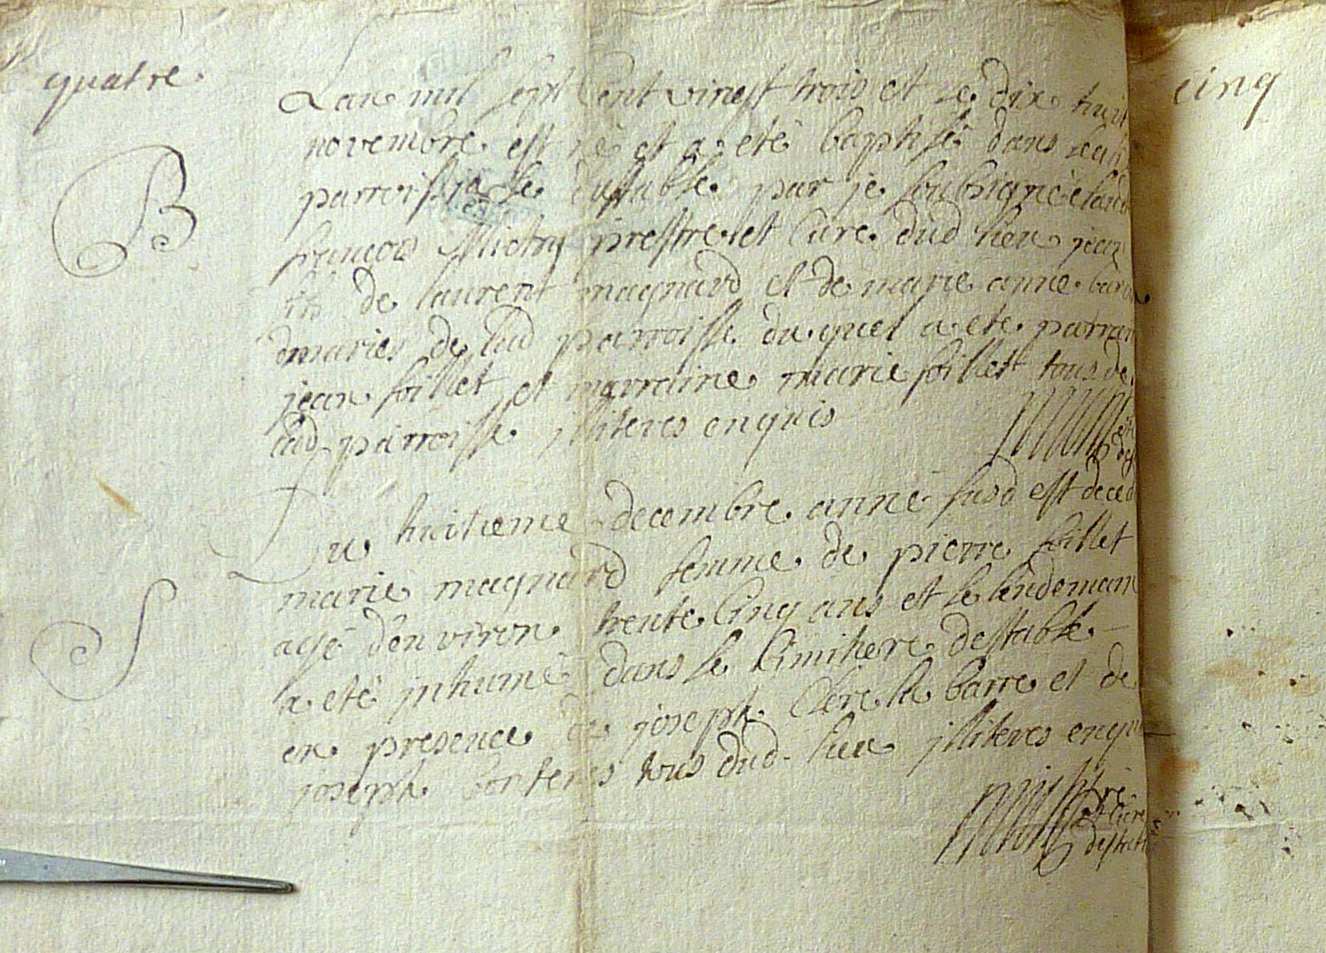 quatre.
Lan mil sept cent vingt trois et le dix huit
novembre est né et a eté baptisé dans
parroissiale destable par je soubsigné
francois prestre et Cure dud lieu jean
fils de laurent magnard et de marie anne
mariés de lad parroisse du quel a ete parrain
jean foillet et marraine marie foillet tous de
lad parroisse illiteres enquis
B
Du huitieme decembre anné susd est deced
marie magnard femme de pierre foillet
agé denviron trente cinq ans et le lendemain
a eté inhumé dans le simitiere destable
en presence de joseph la barre et de
joseph tous dud lieu illiteres enqu
S
cinq